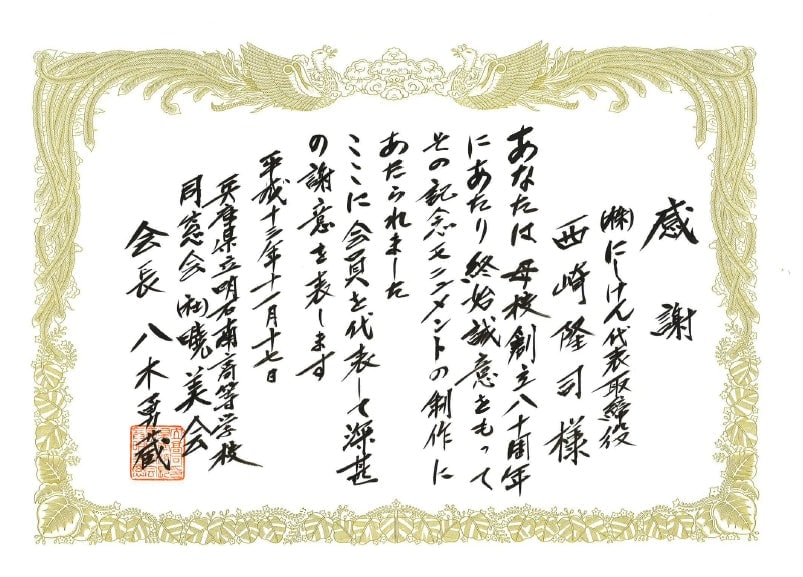 感謝
㈱にしけん代表取締役
西崎隆司様
あなたは母校創立八十周年
にあたり終始誠意をもって
その記念モニュメントの制作に
あたられました
ここに会員を代表して深甚
の謝意を表します
平成十三年十一月十七日
兵庫県立明石南高等学校
同窓会㈳暁美会
会長 八木勇蔵